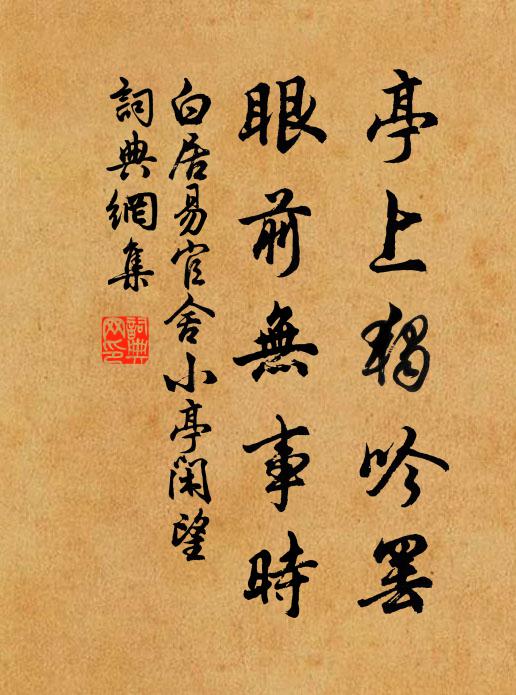 亭上獨吟罷
眼前無事時
白居易官舍小亭閑望
詞典網集
詞典
网印